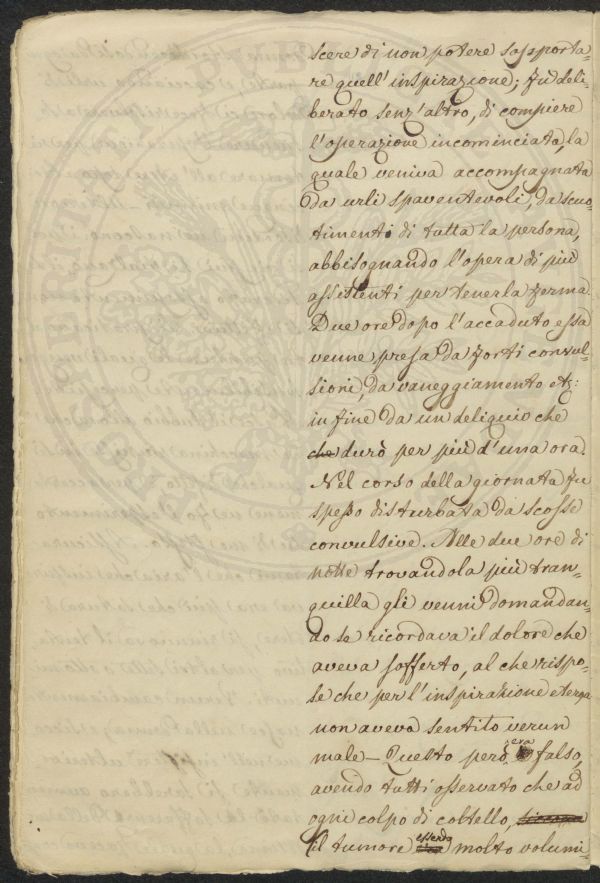 scere di non potere sopporta-
re quell'inspirazione; fu deli-
berato senz'altro, di compiere
l'operazione incominciata, la
quale veniva accompagnata
da urli spaventevoli, da scuo-
timenti di tutta la persona,
abbisognando l'opera di più
assistenti per tenerla ferma.
Due ore dopo l'accaduto essa
venne presa da forti convul-
sioni, da vaneggiamento etc:
in fine da un deliquio che
che durò per più d'una ora.
Nel corso della giornata fu
spesso disturbata da scosse
convulsive. Alle due ore di
notte trovandola più tran-
quilla gli venni domandan-
do se ricordava il dolore che
aveva sofferto, al che rispo-
se che per l'inspirazione eterea
non aveva sentito verun
male - Questo però era falso,
avendo tutti osservato che ad
ogni colpo di coltello,
il tumore essendo molto volumi-